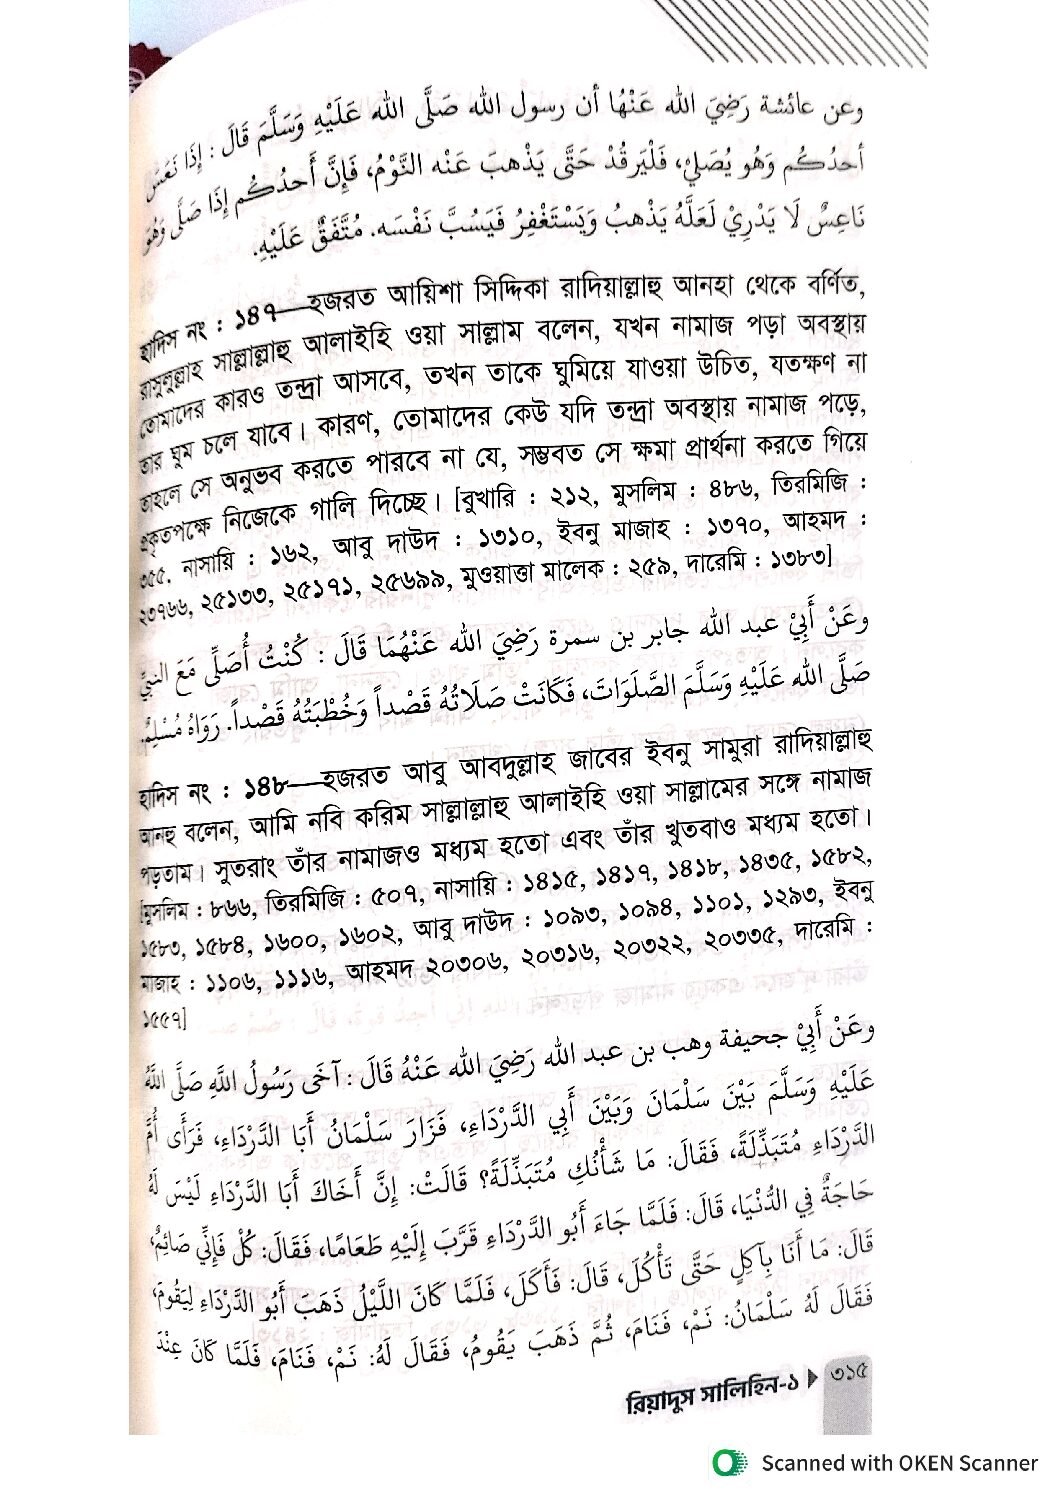 وعن عائشة رَضِيَ الله عَنْهُا أن رسول الله صَلَّى الله عَلَيْهِ وَسَلَّمَ قَالَ : إِذَا نَعَسَ
أحدُكُم وَهُو يُصَلِيْ، فَلْيَرقُدْ حَتَّى يَذْهبَ عَنْه النَّوْمُ، فَإِنَّ أَحدُكُم إِذَا صَلَّى وَهُوَ
نَاعِسٌ لَا يَدْرِيْ لَعَلَّهُ يَذْهبُ وَيَسْتَغْفِرُ فَيَسُبَّ نَفْسَه. مُتَّفَقٌ عَلَيْهِ.
হাদিস নং : ১৪৭—হজরত আয়িশা সিদ্দিকা রাদিয়াল্লাহু আনহা থেকে বর্ণিত,
রাসুলুল্লাহ সাল্লাল্লাহু আলাইহি ওয়া সাল্লাম বলেন, যখন নামাজ পড়া অবস্থায়
তোমাদের কারও তন্দ্রা আসবে, তখন তাকে ঘুমিয়ে যাওয়া উচিত, যতক্ষণ না
তার ঘুম চলে যাবে। কারণ, তোমাদের কেউ যদি তন্দ্রা অবস্থায় নামাজ পড়ে,
তাহলে সে অনুভব করতে পারবে না যে, সম্ভবত সে ক্ষমা প্রার্থনা করতে গিয়ে
প্রকৃতপক্ষে নিজেকে গালি দিচ্ছে। [বুখারি : ২১২, মুসলিম : ৪৮৬, তিরমিজি :
৩৫৫, নাসায়ি : ১৬২, আবু দাউদ : ১৩১০, ইবনু মাজাহ : ১৩৭০, আহমদ :
২৩৭৬৬, ২৫১৩৩, ২৫১৭১, ২৫৬৯৯, মুওয়াত্তা মালেক : ২৫৯, দারেমি : ১৩৮৩]
وعَنْ أَبِيْ عبد الله جابر بن سمرة رَضِيَ الله عَنْهُمَا قَالَ : كُنْتُ أُصَلِّى مَعَ النبيِّ
صَلَّى الله عَلَيْهِ وَسَلَّمَ الصَّلَوَاتَ، فَكَانَتْ صَلَاتُهُ قَصْداً وَخُطْبَتُهُ قَصْداً. رَوَاهُ مُسْلِمٌ.
হাদিস নং : ১৪৮—হজরত আবু আবদুল্লাহ জাবের ইবনু সামুরা রাদিয়াল্লাহু
আনহু বলেন, আমি নবি করিম সাল্লাল্লাহু আলাইহি ওয়া সাল্লামের সঙ্গে নামাজ
পড়তাম। সুতরাং তাঁর নামাজও মধ্যম হতো এবং তাঁর খুতবাও মধ্যম হতো।
[মুসলিম : ৮৬৬, তিরমিজি : ৫০৭, নাসায়ি : ১৪১৫, ১৪১৭, ১৪১৮, ১৪৩৫, ১৫৮২,
১৫৮৩, ১৫৮৪, ১৬০০, ১৬০২, আবু দাউদ : ১০৯৩, ১০৯৪, ১১০১, ১২৯৩, ইবনু
মাজাহ : ১১০৬, ১১১৬, আহমদ ২০৩০৬, ২০৩১৬, ২০৩২২, ২০৩৩৫, দারেমি :
১৫৫৭]
وعَنْ أَبِيْ جحيفة وهب بن عبد الله رَضِيَ الله عَنْهُ قَالَ : آخَى رَسُولُ اللَّهِ صَلَّى اللَّهُ
عَلَيْهِ وَسَلَّمَ بَيْنَ سَلْمَانَ وَبَيْنَ أَبِي الدَّرْدَاءِ، فَزَارَ سَلْمَانُ أَبَا الدَّرْدَاءِ، فَرَأَى أُمَّ
الدَّرْدَاءِ مُتَبَذِّلَةً، فَقَالَ: مَا شَأْنُكِ مُتَبَذِّلَةً؟ قَالَتْ: إِنَّ أَخَاكَ أَبَا الدَّرْدَاءِ لَيْسَ لَهُ
حَاجَةٌ فِي الدُّنْيَا، قَالَ: فَلَمَّا جَاءَ أَبُو الدَّرْدَاءِ قَرَّبَ إِلَيْهِ طَعَامًا، فَقَالَ: كُلْ فَإِنِّي صَائِمٌ،
قَالَ: مَا أَنَا بِآكِلٍ حَتَّى تَأْكُلَ، قَالَ: فَأَكَلَ، فَلَمَّا كَانَ اللَّيْلُ ذَهَبَ أَبُو الدَّرْدَاءِ لِيَقُومَ،
فَقَالَ لَهُ سَلْمَانُ: نَمْ، فَنَامَ، ثُمَّ ذَهَبَ يَقُومُ، فَقَالَ لَهُ: نَمْ، فَنَامَ، فَلَمَّا كَانَ عِنْدَ
রিয়াদুস সালিহিন-১ ▶ ৩১৫
Scanned with OKEN Scanner